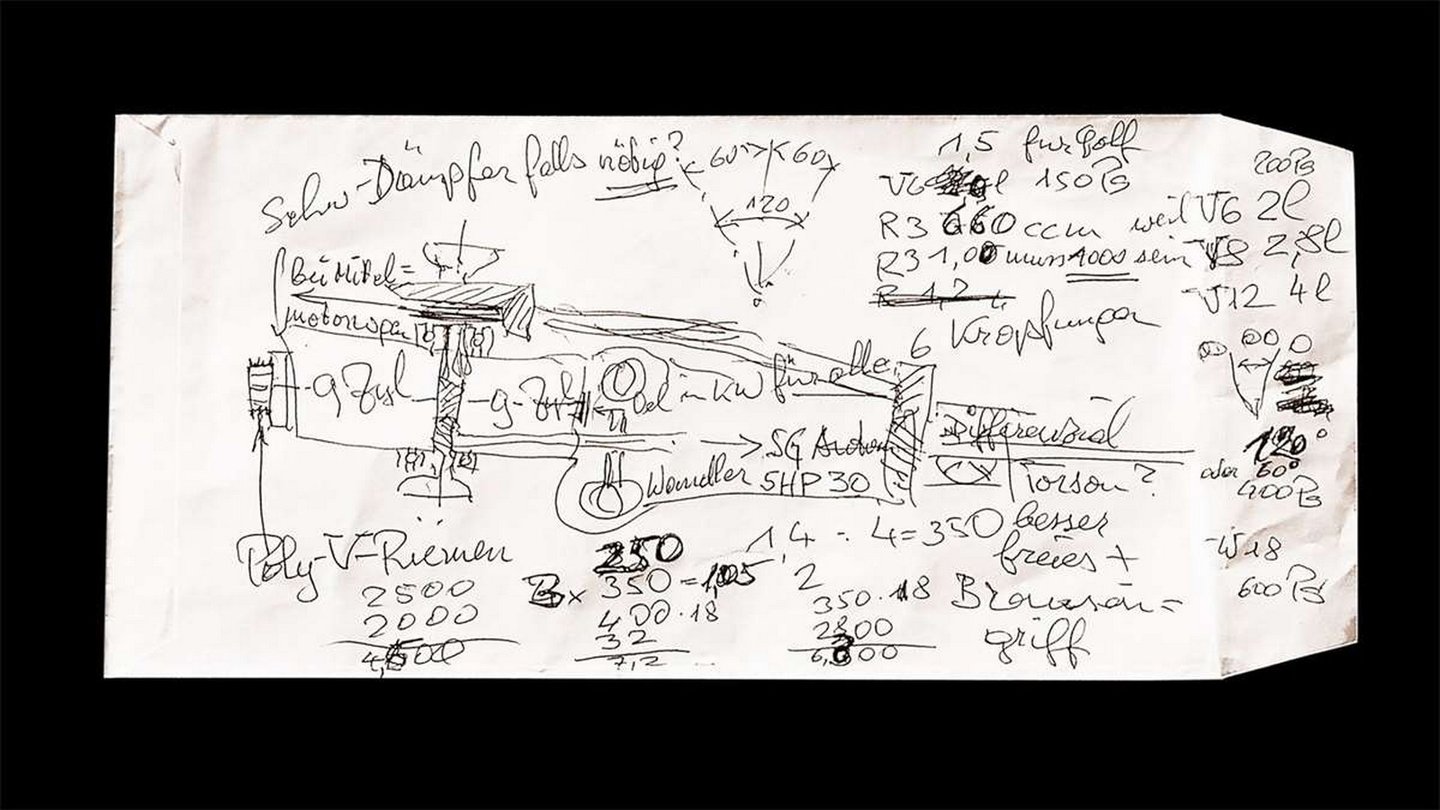 Schw-Dämpfer falls nötig?
60° 60
120
1,5 für Golf
V6 l 150 PS
R3 660 ccm weil
R3 1,00 muss 1000 sein
R 1,2 l
6 Kröpfungen
200 PS
V6 2l
V8 2,8l
V12 4l
Bei Mittel=
motorwagen
9 Zyl
9-Zyl
Oel in KW für alle
SG Autom
5HP30
Wandler
Differenzial
Torson?
besser
freies +
Brownson=
griff
60
120°
oder 60°
400 PS
W18
600 PS
Poly-V-Riemen
2500
2000
250
x 350 = 1,05
400·18
32
7,2
1,4 : 4 = 350
2
350·18
2800